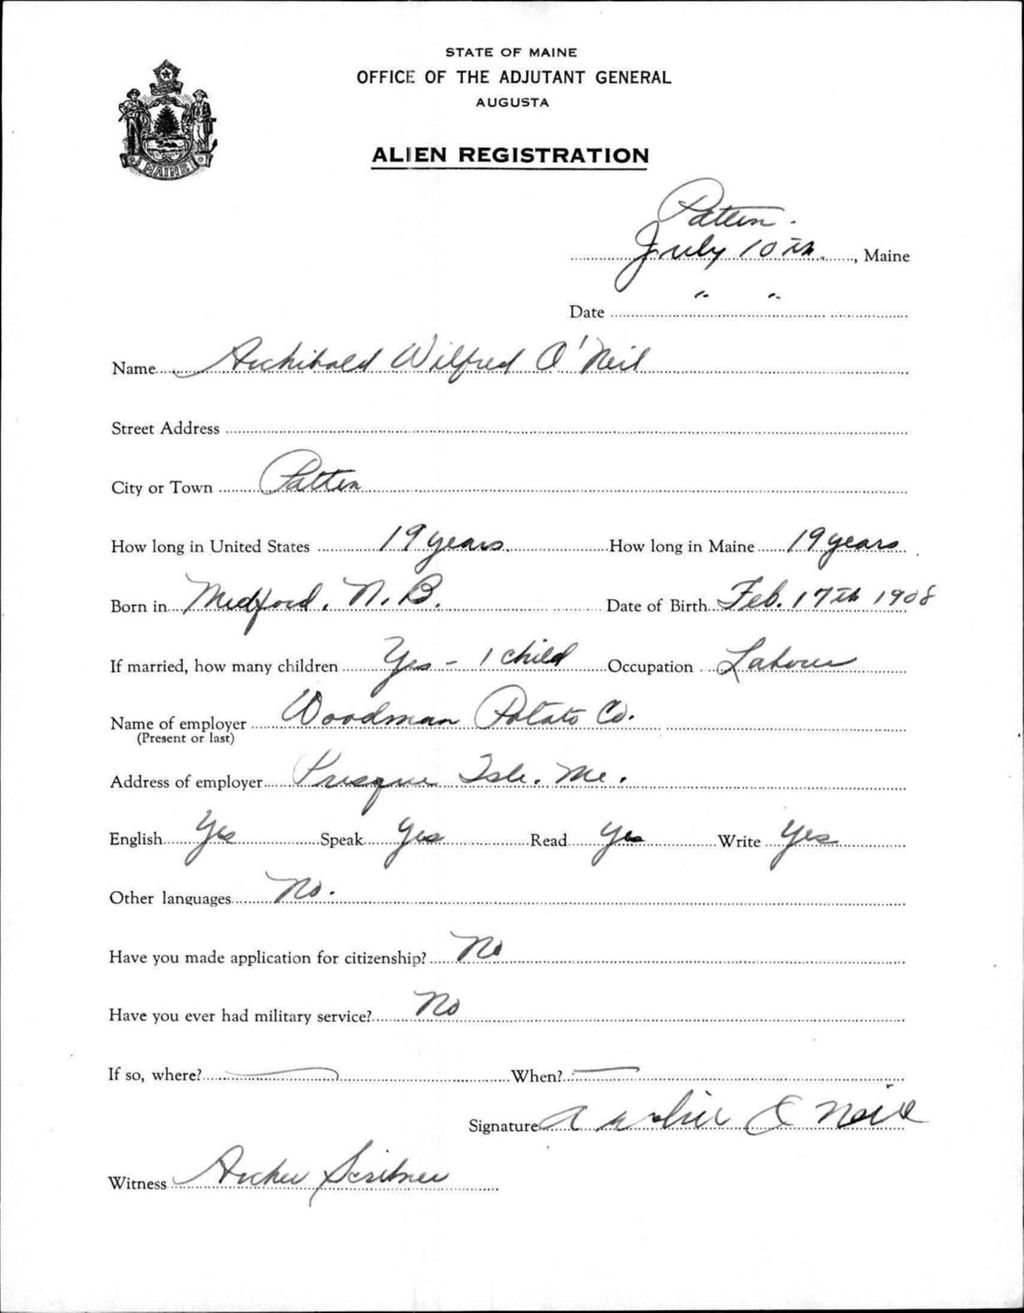 STATE OF MAINE
OFFICE OF THE ADJUTANT GENERAL
AUGUSTA
MAINE
ALIEN REGISTRATION
Patten.
July 10th, Maine
Date " "
Name Archibald Wilfred O'Neil
Street Address
City or Town Patten
How long in United States 19 years How long in Maine 19 years
Born in Medford, N.B. Date of Birth Feb. 17th 1908
If married, how many children Yes - 1 child Occupation Laborer
Name of employer Woodman Potato Co.
(Present or last)
Address of employer Presque Isle. Me.
English Yes Speak Yes Read Yes Write Yes
Other languages No.
Have you made application for citizenship? No
Have you ever had military service? No
If so, where? When?
Signature Archie O Neil
Witness Archer Scribner